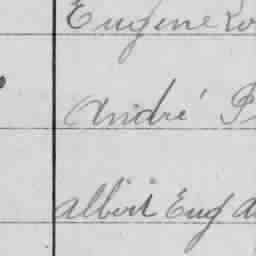 Eugene
André
Albert Eug